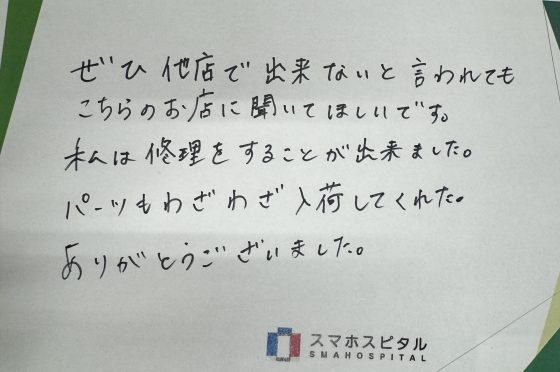 ぜひ他店で出来ないと言われても
こちらのお店に聞いてほしいです。
私は修理をすることが出来ました。
パーツもわざわざ入荷してくれた。
ありがとうございました。
スマホスピタル
SMAHOSPITAL